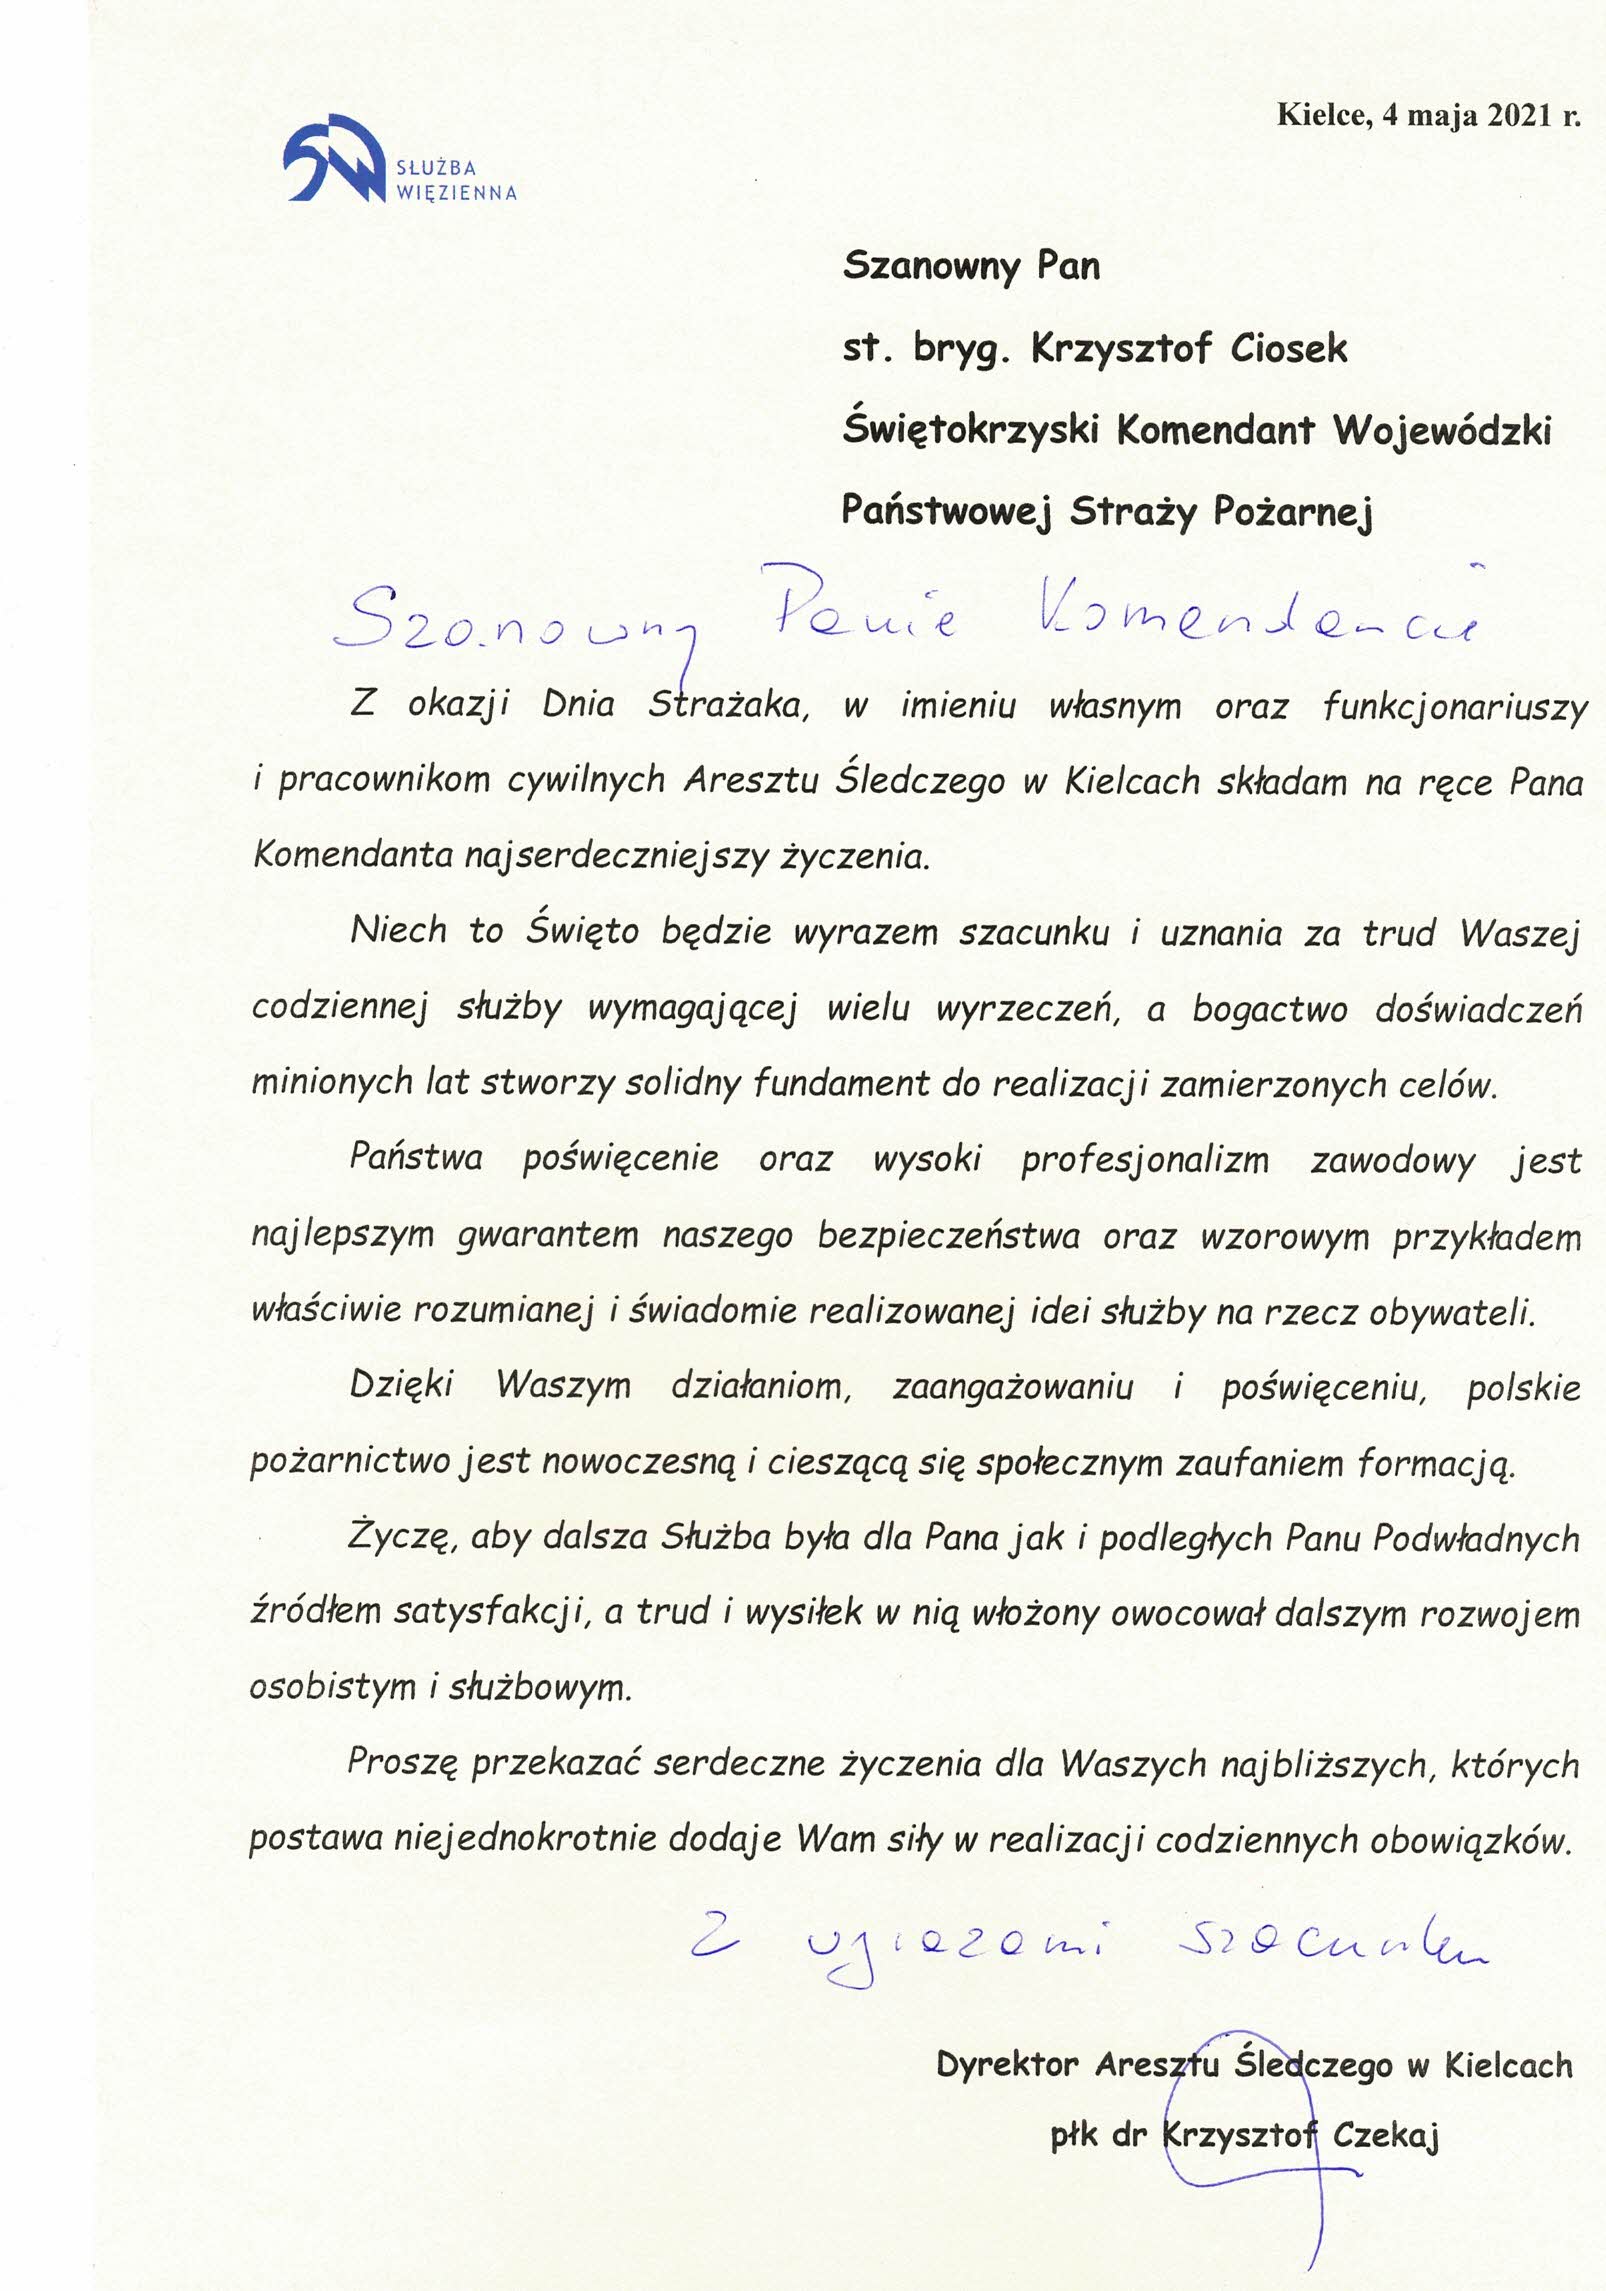 Kielce, 4 maja 2021 r.
SŁUŻBA
WIĘZIENNA
Szanowny Pan
st. bryg. Krzysztof Ciosek
Świętokrzyski Komendant Wojewódzki
Państwowej Straży Pożarnej
Szanowny Panie Komendancie
Z okazji Dnia Strażaka, w imieniu własnym oraz funkcjonariuszy
i pracownikom cywilnych Aresztu Śledczego w Kielcach składam na ręce Pana
Komendanta najserdeczniejszy życzenia.
Niech to Święto będzie wyrazem szacunku i uznania za trud Waszej
codziennej służby wymagającej wielu wyrzeczeń, a bogactwo doświadczeń
minionych lat stworzy solidny fundament do realizacji zamierzonych celów.
Państwa poświęcenie oraz wysoki profesjonalizm zawodowy jest
najlepszym gwarantem naszego bezpieczeństwa oraz wzorowym przykładem
właściwie rozumianej i świadomie realizowanej idei służby na rzecz obywateli.
Dzięki Waszym działaniom, zaangażowaniu i poświęceniu, polskie
pożarnictwo jest nowoczesną i cieszącą się społecznym zaufaniem formacją.
Życzę, aby dalsza Służba była dla Pana jak i podległych Panu Podwładnych
źródłem satysfakcji, a trud i wysiłek w nią włożony owocował dalszym rozwojem
osobistym i służbowym.
Proszę przekazać serdeczne życzenia dla Waszych najbliższych, których
postawa niejednokrotnie dodaje Wam siły w realizacji codziennych obowiązków.
Z wyrazami szacunku
Dyrektor Aresztu Śledczego w Kielcach
płk dr Krzysztof Czekaj